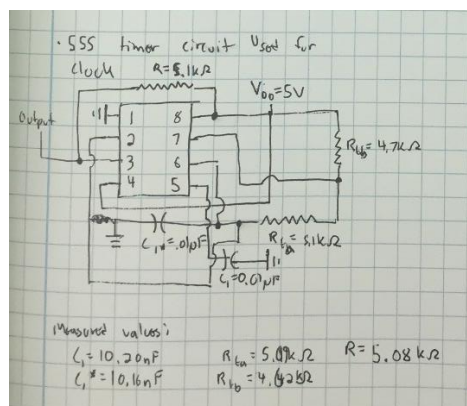 · 555 timer circuit Used for
Clock
R=5.1kΩ
V_DD=5V
Output
1 8
2 7
3 6
4 5
R_tb=4.7kΩ
C_1*=.01μF
R_ta=5.1kΩ
C_1=0.01μF
Measured values:
C_1=10.20nF R_ta=5.09kΩ R=5.08kΩ
C_1*=10.16nF R_tb=